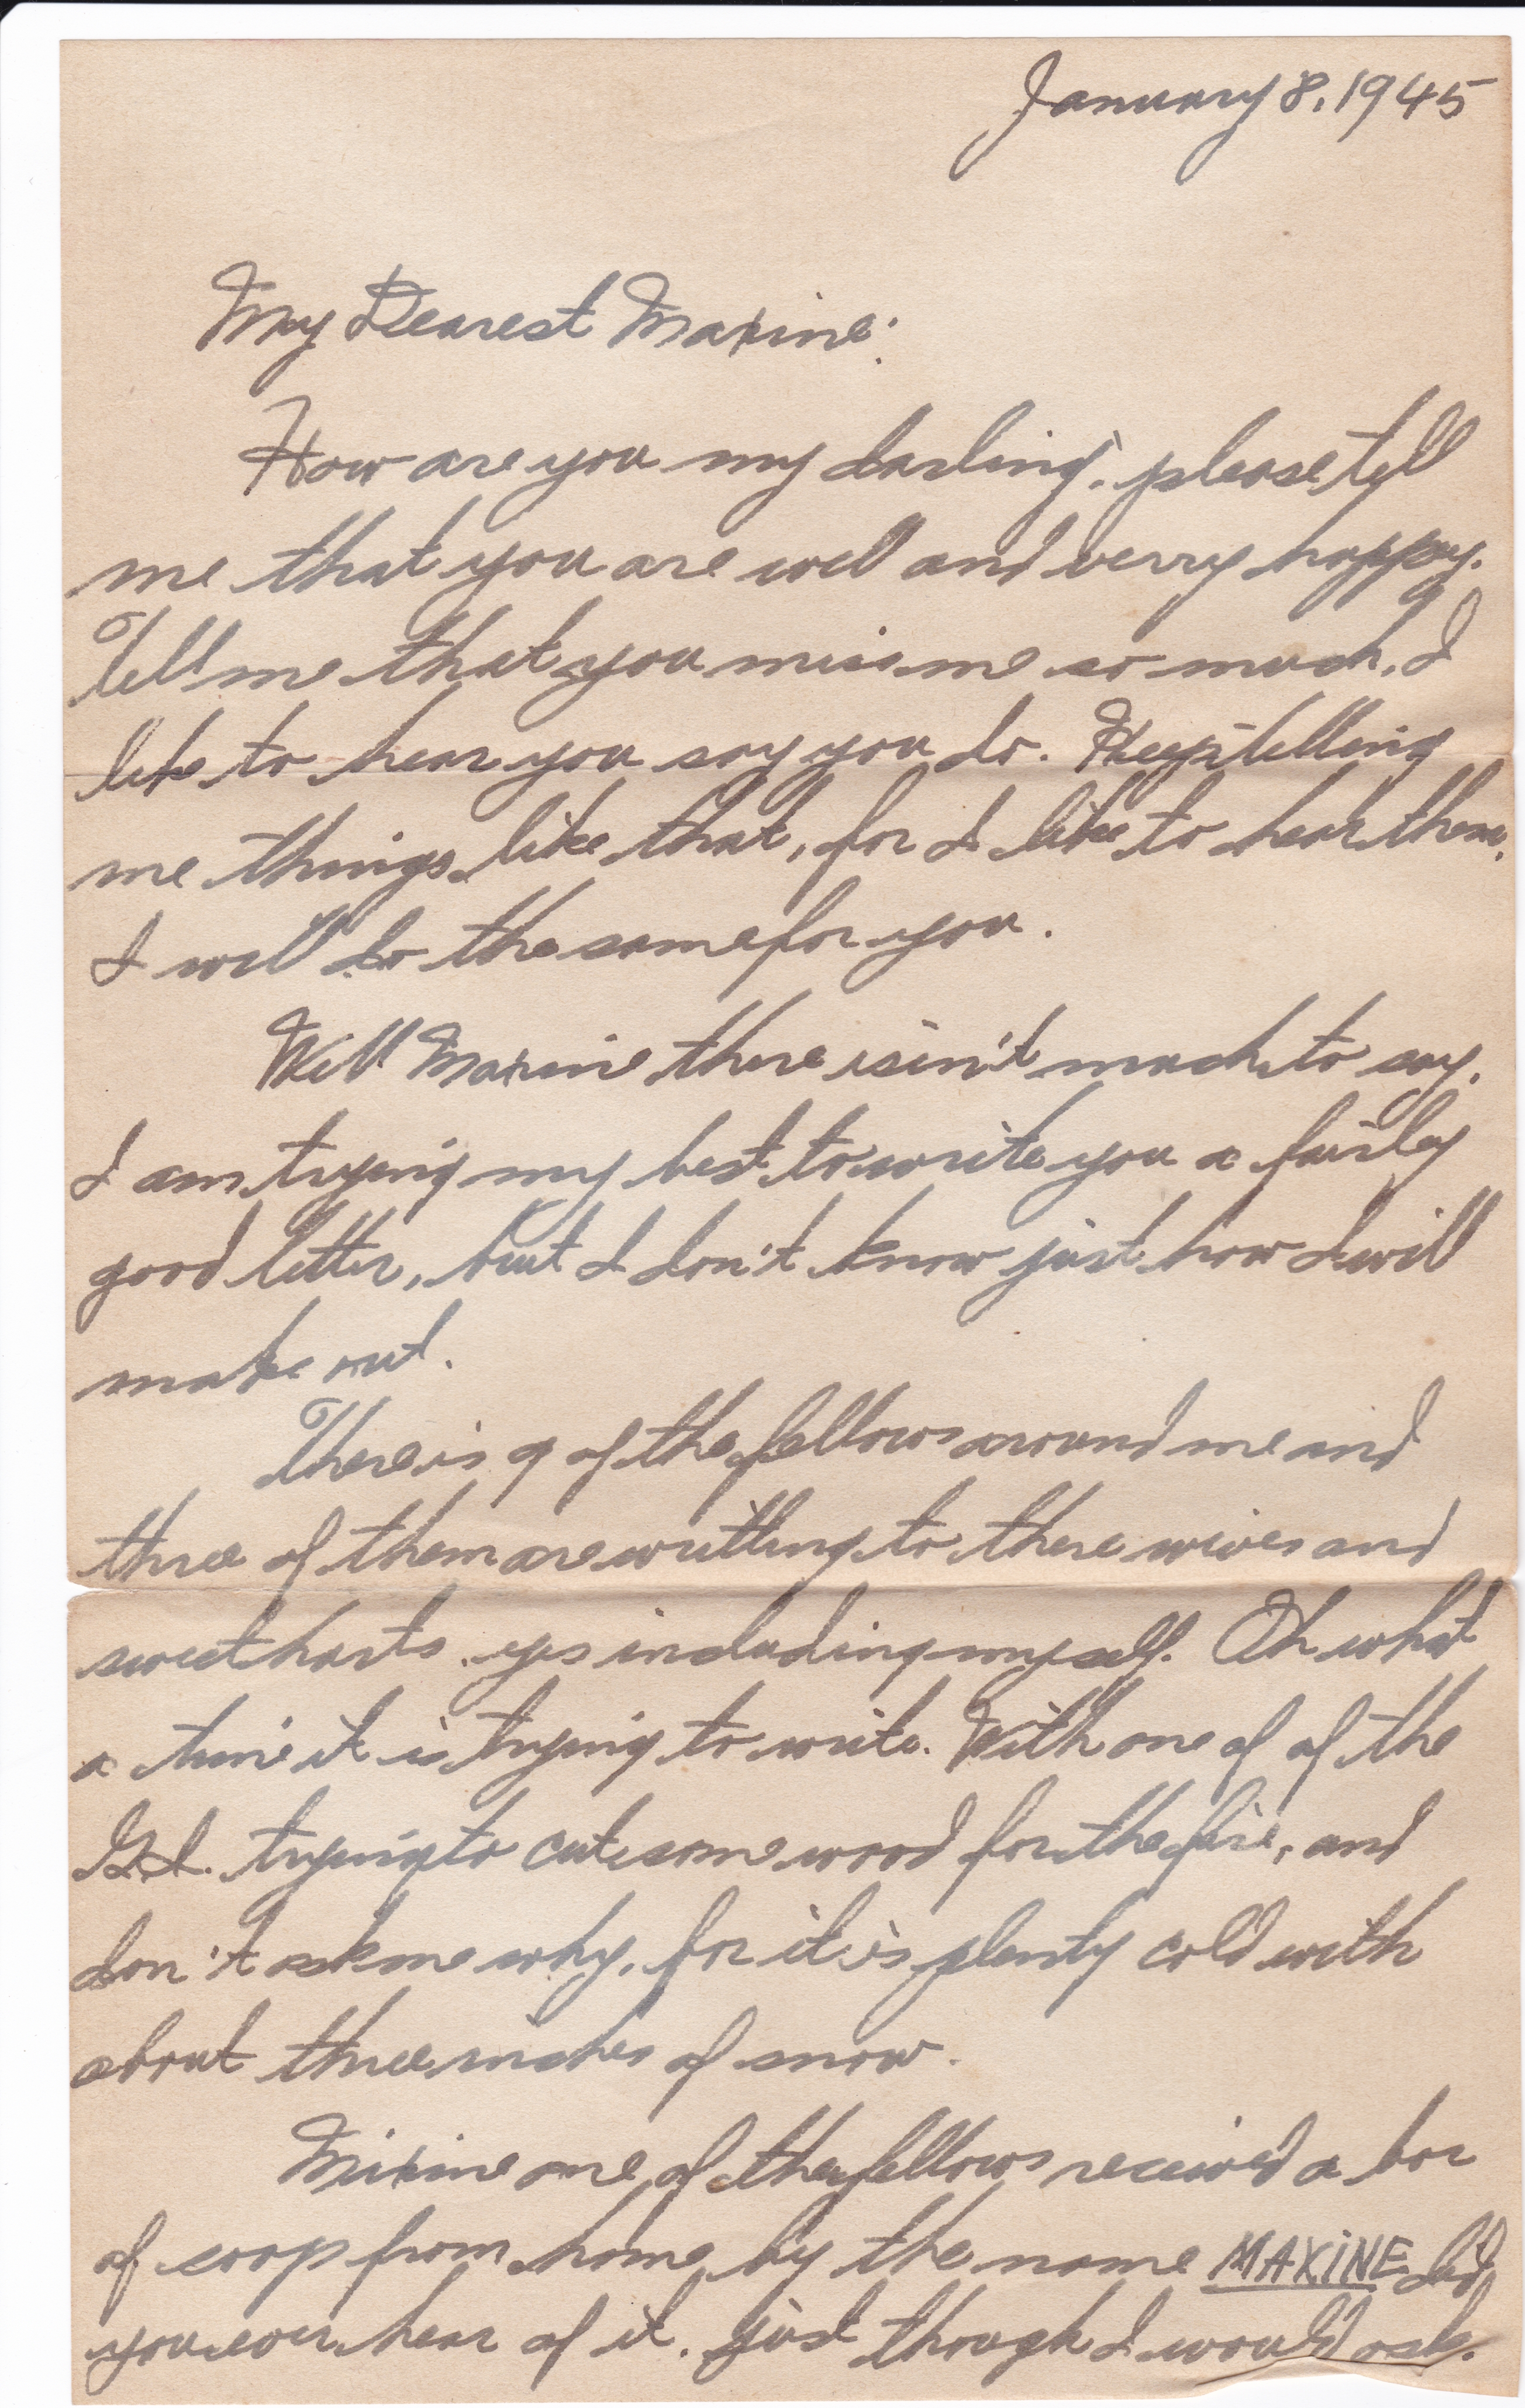 January 8, 1945
My Dearest Maxine:
How are you my darling, please tell
me that you are well and verry happy.
Tell me that you miss me so much, I
like to hear you say you do. Keep telling
me things like that, for I like to hear them.
I will do the same for you.
Well Maxine there isin't much to say.
I am trying my best to write you a fairley
good letter, but I don't know just how I will
make out.
There is 9 of the fellows around me and
three of them are writting to there wives and
sweetharts. yes including myself. Oh what
a time it is trying to write. With one of of the
G.I. trying to cut some wood for the fire, and
don't ask me why, for it is plenty cold with
about three inches of snow.
Mixine one of the fellows received a box
of soap from home by the name MAXINE did
you ever hear of it. Just though I would ask.